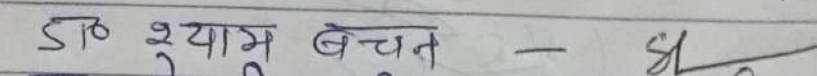 डा० श्याम बचन —